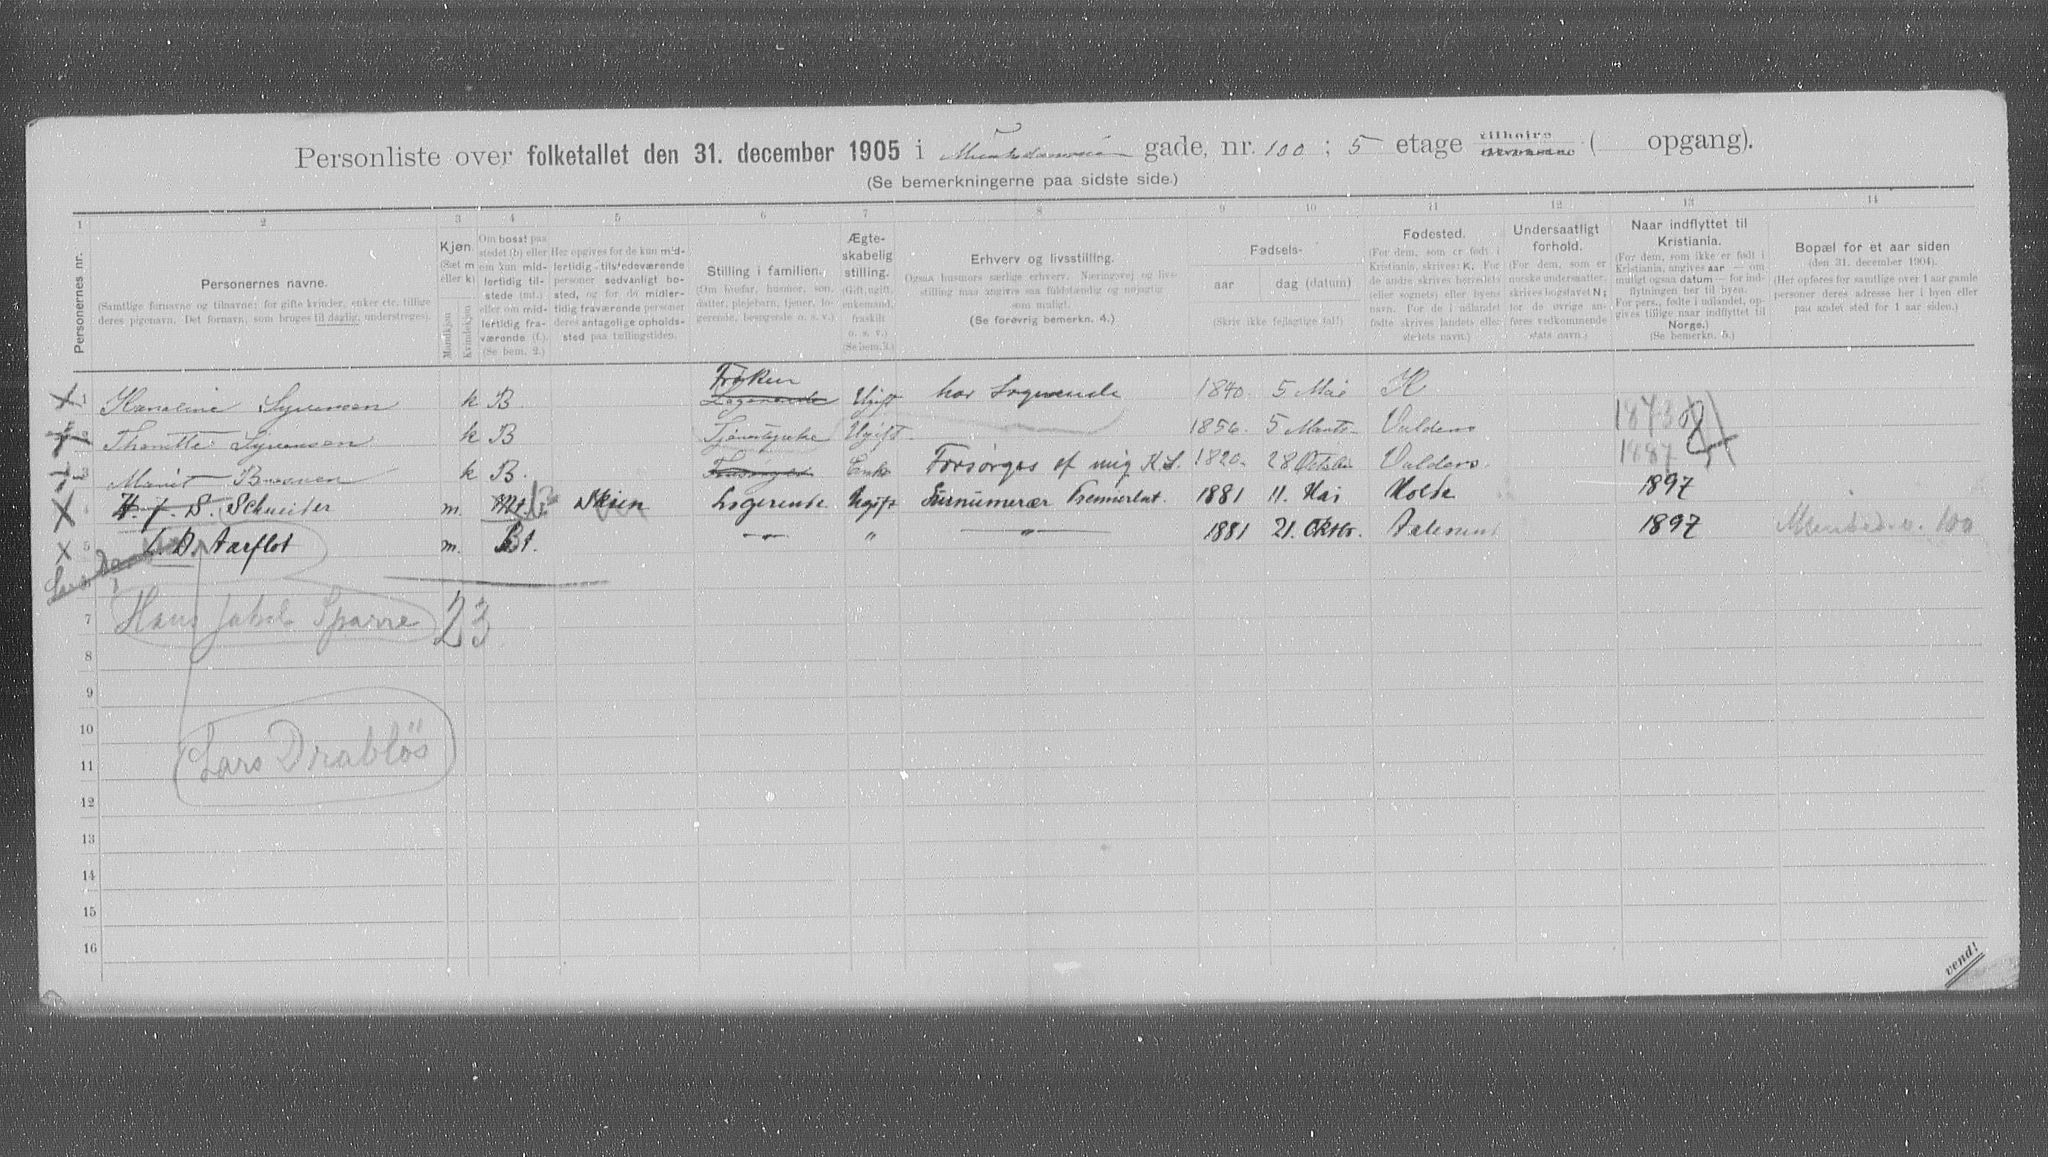 Personliste over folketallet den 31. december 1905 i Munkedamsveien gade, nr. 100 ; 5 etage tilhøire ( opgang).
(Se bemerkningerne paa sidste side.)
1 2 3 4 5 6 7 8 9 10 11 12 13 14
Personernes nr.
Personernes navne.
(Samtlige fornavne og tilnavne; for gifte kvinder, enker etc. tillige deres pigenavn. Det fornavn, som bruges til daglig, understreges).
Kjøn.
(Sæt m eller k)
Mandkjøn
Kvindekjøn
Om bosat paa stedet (b) eller om kun midlertidig tilstede (mt.) eller om midlertidig fraværende (f.) (Se bem. 2.)
Her opgives for de kun midlertidig tilstedeværende personer sedvanligt bosted, og for de midlertidig fraværende personer deres antagelige opholdssted paa tællingstiden.
Stilling i familien.
(Om husfar, husmor, søn, datter, plejebarn, tjener, logerende, besøgende o. s. v.)
Ægteskabelig stilling.
(Gift, ugift, enkemand, fraskilt o. s. v.)
(Se bem. 3.)
Erhverv og livsstilling.
Ogsaa husmors særlige erhverv. Næringsvej og livsstilling maa angives saa fuldstændig og nøjagtig som muligt.
(Se forøvrig bemerkn. 4.)
Fødsels-
aar
dag (datum)
(Skriv ikke fejlagtige tal!)
Fødested.
(For dem, som er født i Kristiania, skrives: K. For de andre skrives herredets (eller sognets) eller byens navn. For de i udlandet fødte skrives landets eller stetets navn.)
Undersaatligt forhold.
(For dem, som er norske undersaatter, skrives bogstavet N; for de øvrige anføres vedkommende stats navn.)
Naar indflyttet til Kristiania.
(For dem, som ikke er født i Kristiania, angives aar — om muligt ogsaa datum — for indflytningen her til byen. For pers., fødte i udlandet, opgives tillige naar indflyttet til Norge.)
(Se bemerkn. 5.)
Bopæl for et aar siden
(den 31. december 1904).
(Her opføres for samtlige over 1 aar gamle personer deres adresse her i byen eller paa andet sted for 1 aar siden.)
Frøken
1 Karoline Syvensen k B Logerende Ugift har Logerende 1840 5 Mai K
2 Syvensen k B Ugift 1856 5 Marts Valders 1873
3 Marit k B. Enke Forsørges af mig K.S. 1820 28 Oktober Valders 1887
4 H. J. S. Schneider m. Mt. b Skien Logerende Ugift Surnumerær 1881 11. Mai Molde 1897
5 L. D. Aarflot m. Bt. — " — " — 1881 21. Oktbr. Aalesund 1897 Munked.v. 100
7 Hans Jakob Sparre 23
8
9
10 Lars Drabløs
11
12
13
14
15
16
vend!